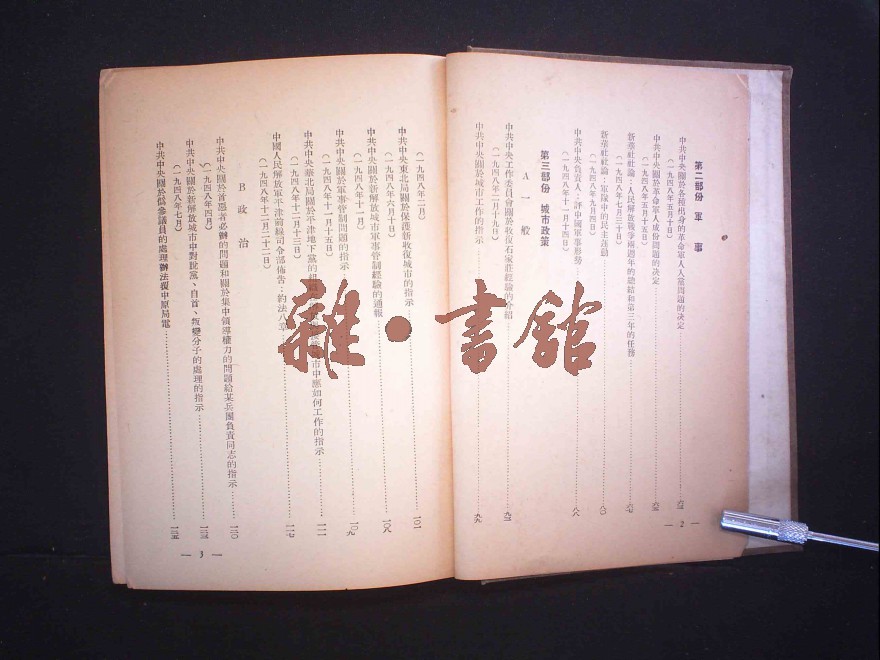 第二部份 軍 事
中共中央關於各種出身的革命軍人入黨問題的决定
(一九四八年五月十日)
中共中央關於革命軍人成份問題的决定
(一九四八年五月十五日)
新華社社論：人民解放戰爭兩週年的總結和第三年的任務
(一九四八年七月三十日)
新華社社論：軍隊中的民主運動
(一九四八年九月四日)
中共中央負責人 評中國軍事形勢
(一九四八年十一月十四日)
第三部份 城市政策
A 一 般
中共中央工作委員會關於收復石家莊經驗的介紹
(一九四八年二月十九日)
中共中央關於城市工作的指示
— 2 —
(一九四八年二月)
中共中央東北局關於保護新收復城市的指示 一〇一
(一九四八年六月十日)
中共中央關於新解放城市軍事管制經驗的通報 一〇八
(一九四八年十一月)
中共中央關於軍事管制問題的指示 一〇九
(一九四八年十一月十五日)
中共中央華北局關於平津地下黨的組織 市中應如何工作的指示
(一九四八年十二月十三日)
中國人民解放軍平津前線司令部佈告：約法八章 一一七
(一九四八年十二月二十二日)
B 政 治
中共中央關於首惡者必辦的問題和關於集中領導權力的問題給某兵團負責同志的指示 一二〇
(一九四八年四月)
中共中央關於新解放城市中對脫黨、自首、叛變分子的處理的指示
(一九四八年七月)
中共中央關於僞參議員的處理辦法覆中原局電 一二五
— 3 —
雜·書館